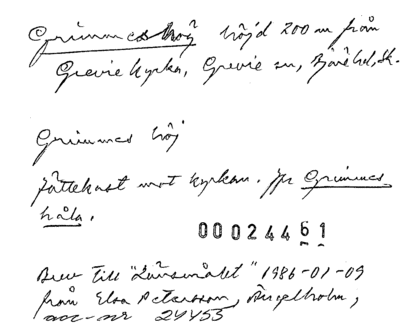 Grimmes höj höjd 200 m från
Grevie kyrka, Grevie sn, Bjäre hd, Sk.
Grimmes höj
Jättekast mot kyrkan. Jfr Grimmes
håla.
00024461
Brev till "Länsmålet" 1986-01-09
från Elsa Petersson, Ängelholm,
acc-nr 24455